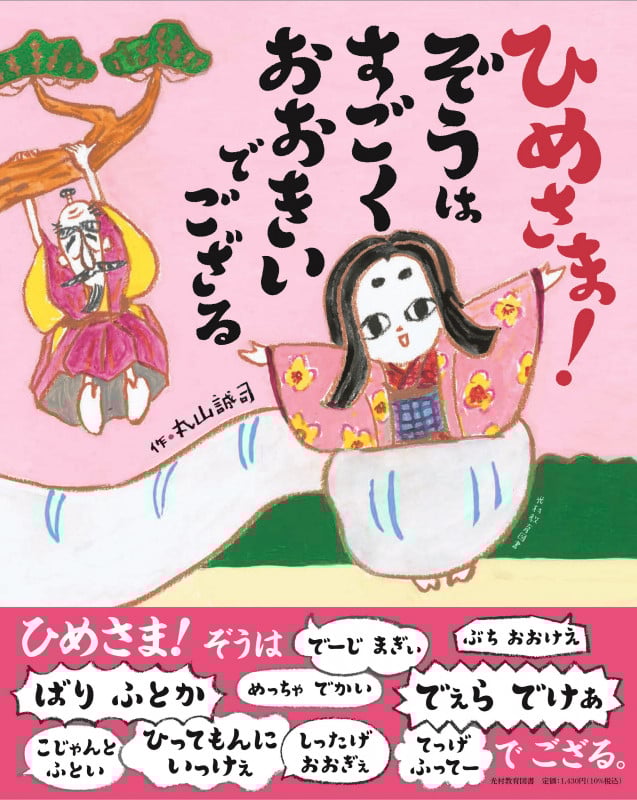 ひめさま!
ぞうは
すごく
おおきい
で
ござる
作・丸山誠司
光村教育図書
ひめさま! ぞうは
でーじ まぎぃ
ぶち おおけえ
ばり ふとか
めっちゃ でかい
でぇら でけぁ
こじゃんと
ふとい
ひってもんに
いっけぇ
しったげ
おおぎぇ
てっげ
ふってー
で ござる。
光村教育図書 定価:1,430円(10%税込)